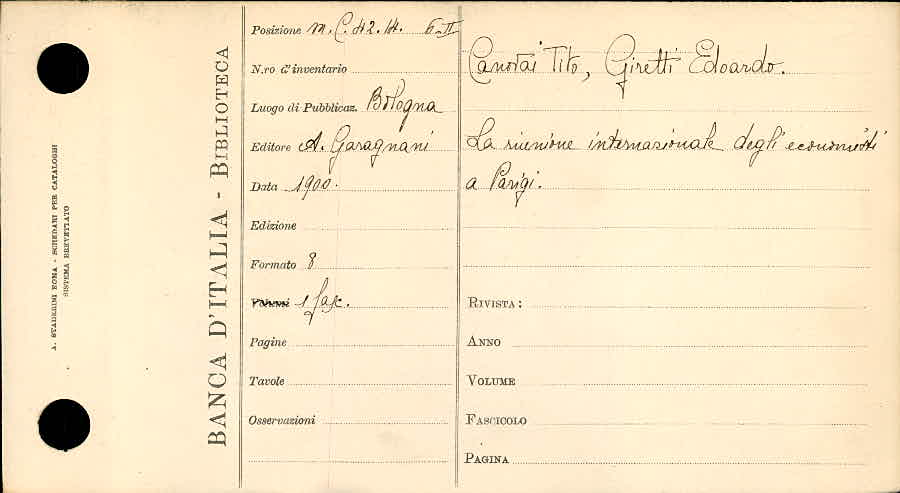 A. STADERINI ROMA - SCHEDARI PER CATALOGHI
SISTEMA BREVETTATO
BANCA D'ITALIA - BIBLIOTECA
Posizione m. C. 42. 14. 6-II
N.ro d'inventario
Luogo di Pubblicaz. Bologna
Editore A. Garagnani
Data 1900.
Edizione
Formato 8
Volumi 1 fasc.
Pagine
Tavole
Osservazioni
Canovai Tito, Giretti Edoardo.
La riunione internazionale degli economisti
a Parigi.
RIVISTA:
ANNO
VOLUME
FASCICOLO
PAGINA